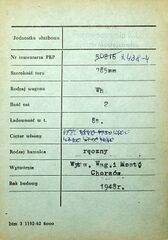 Jednostka służbowa
Nr inwentarza PKP
Szerokość toru 785mm
Rodzaj wagonu Wh
Ilość osi 2
Ładowność w t. 8t.
Ciężar własny
Rodzaj hamulca ręczny
Wytwórnia Wytw. Wag. i Mostów
Chorzów.
Rok budowy 1948r.